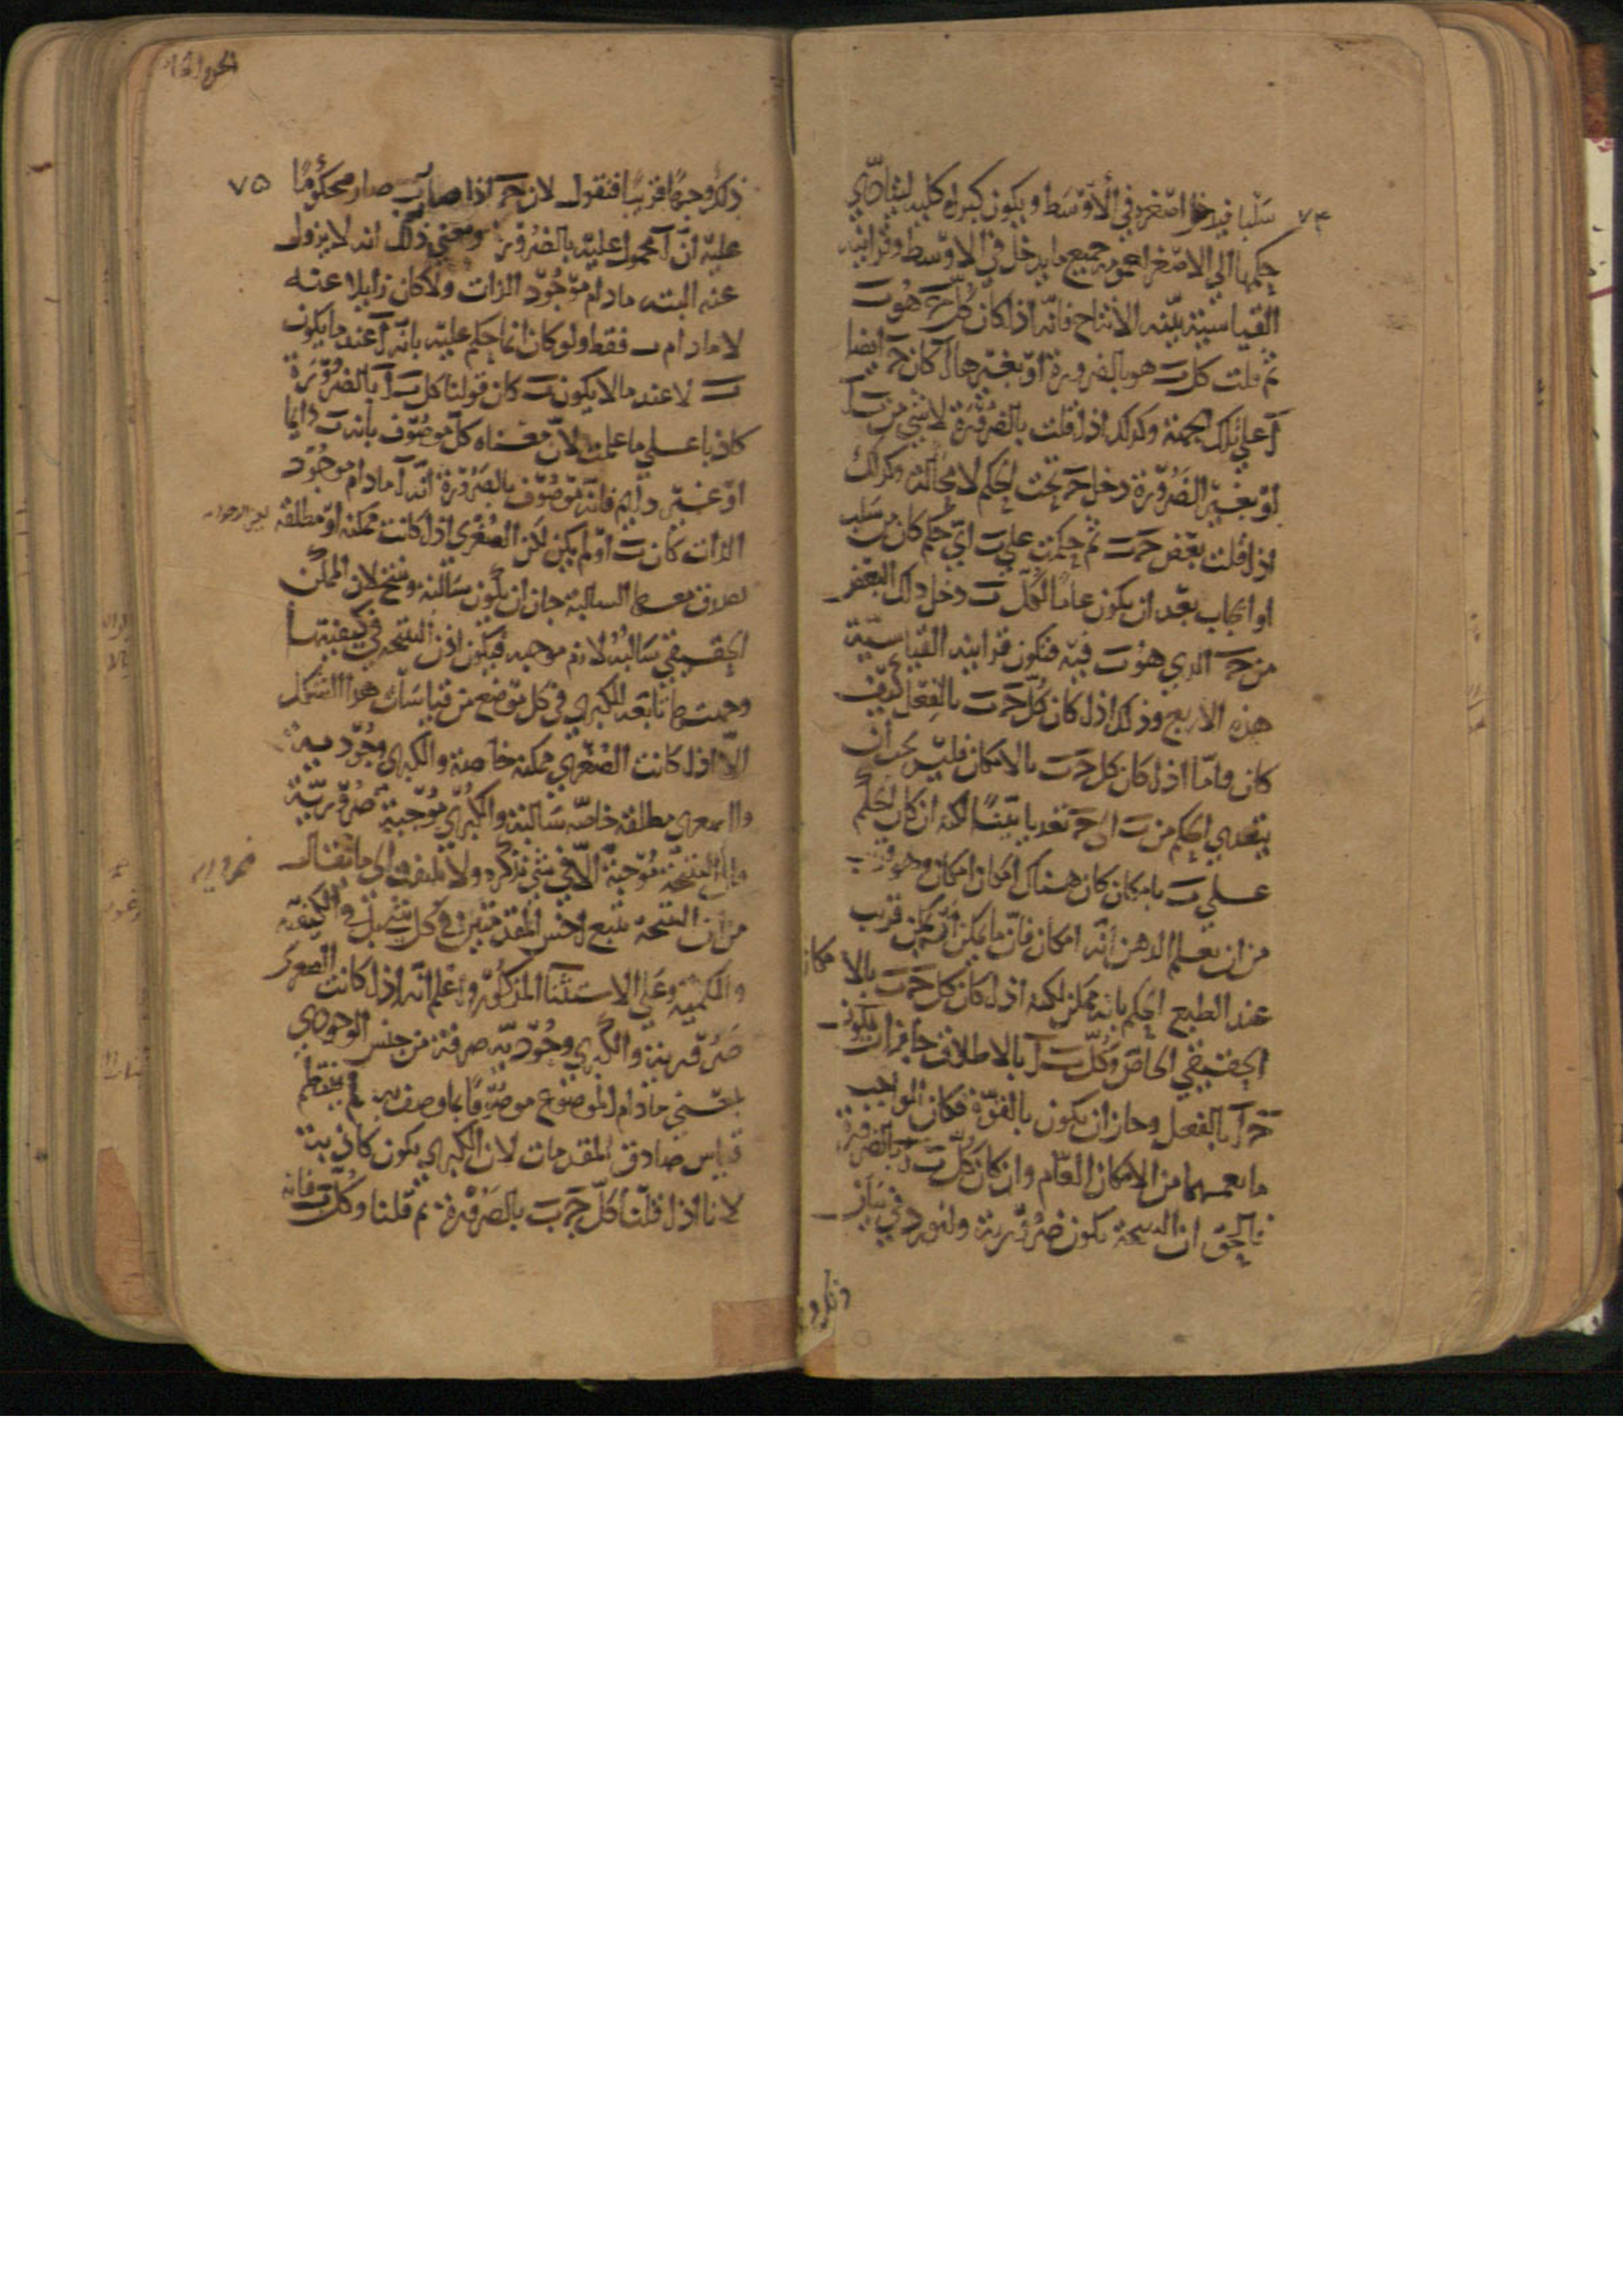 ٧٤
سلبا فيدخل اصغره في الأوسط ويكون كبراه كلية ليتأدى
حكمها الي الاصغر لعمومه جميع ما يدخل في الاوسط وقرائنه
القياسية بينه الانتاج فانه اذا كان كل ج هو ب
ثم قلت كل ب هو بالضرورة او بغيرها آ كان ج ايضا
آ علي تلك الجهة وكذلك اذا قلت بالضرورة لا شي من ب آ
او بغير الضرورة دخل ج تحت الحكم لا محالة وكذلك
اذا قلت بعض ج ب ثم حكمت علي ب اي حكم كان من سلب
او ايجاب بعد ان يكون عاما لكل ب دخل ذلك البعض
من ج الذي هو ب فيه فتكون قراينه القياسية
هذه الاربع وذلك اذا كان كل ج ب بالفعل كيف
كان واما اذا كان كل ج ب بالامكان فليس يجب ان
يتعدي الحكم من ب الي ج تعديا بينا لكنه ان كان الحكم
علي ب بامكان كان هناك امكان امكان وهو قريب
من ان يعلم الذهن انه امكان فان ما يمكن ان يمكن قريب
عند الطبع الحكم بانه ممكن لكنه اذا كان كل ج ب بالامكان
الحقيقي الخاص وكل ب آ بالاطلاق جاز ان يكون
ج آ بالفعل وجاز ان يكون بالقوة فكان الواجب
ما يعمهما من الامكان العام وان كان كل ب آ بالضرورة
فالحق ان النتيجة تكون ضرورية ولنورد في بيان
ذلك و
٧٥
ذلك وجها قريبا فنقول لان ج اذا صار ب صار محكوما
عليه ان آ محمول عليه بالضرورة ومعني ذلك انه لا يزول
عنه البته مادام موجود الذات ولا كان زايلا عنه
لا مادام ب فقط ولو كان انما حكم عليه بانه آ عند ما يكون
ب لا عند ما لا يكون ب كان قولنا كل ب آ بالضرورة
كاذبا علي ما علمت لان معناه كل موصوف بانه ب دايما
او غير دايم فانه موصوف بالضرورة انه آ مادام موجود
الذات كان ب او لم يكن لكن الصغري اذا كانت ممكنه او مطلقه
تصدق معها السالبة جاز ان تكون سالبة وتنتج لان الممكن
الحقيقي سالبه لازم موجبه فيكون اذن النتيجه في كيفيتها
وجهتها تابعه للكبري في كل موضع من قياسات هذا الشكل
الا اذا كانت الصغري ممكنه خاصة والكبري وجودية
والصغري مطلقة خاصه سالبة والكبري موجبة ضرورية
النتيجة موجبة الا في شي نذكره ولا تلتفت الي ما يقال
من ان النتيجة تتبع اخس المقدمتين في كل شي بل في الكيفيه
والكمية وعلي الاستثنا المذكور واعلم انه اذا كانت الصغري
ضرورية والكبري وجودية صرفة من جنس الوجودي
بمعني مادام الموضوع موصوفا بما وصف به لم ينتظم
قياس صادق المقدمات لان الكبري تكون كاذبة
لانا اذا قلنا كل ج ب بالضرورة ثم قلنا وكل ب فانه